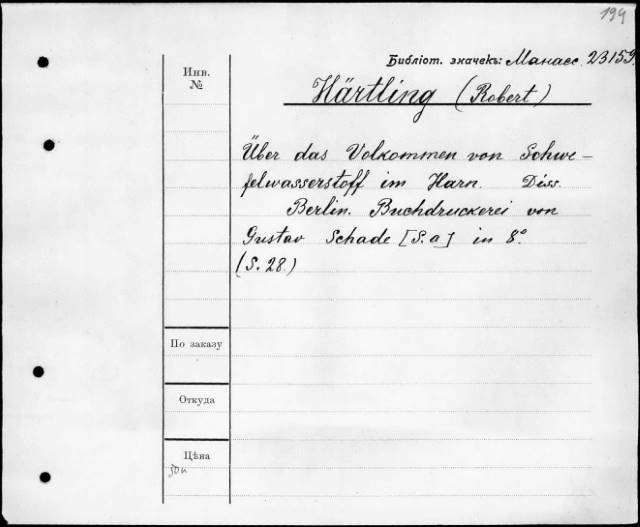 199
Библіот. значекъ: Манасс. 23159.
Инв.
№
Härtling (Robert)
Über das Volkommen von Schwe-
felwasserstoff im Harn. Diss.
Berlin. Buchdruckerei von
Gustav Schade [S.a] in 8°.
(S. 28.)
По заказу
Откуда
Цѣна
50к